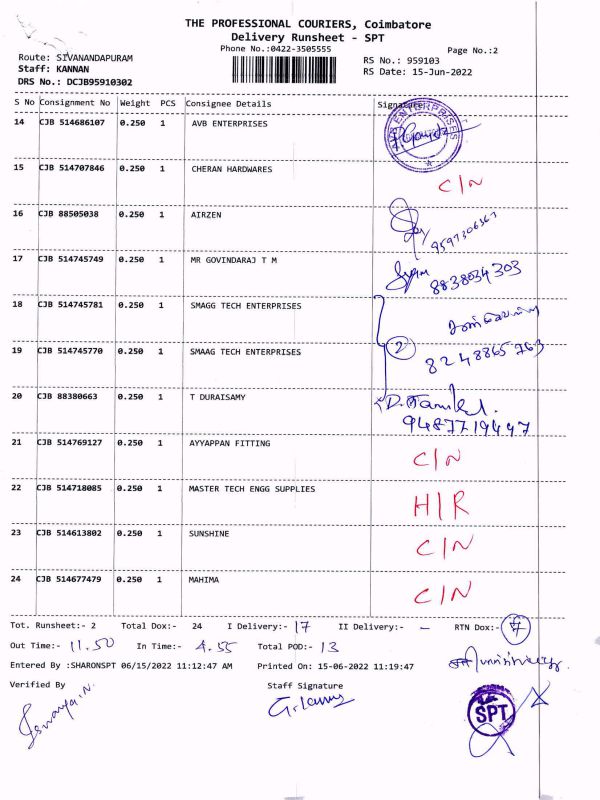 THE PROFESSIONAL COURIERS, Coimbatore
Delivery Runsheet - SPT
Phone No.:0422-3505555
Page No.:2
Route: SIVANANDAPURAM
RS No.: 959103
Staff: KANNAN
RS Date: 15-Jun-2022
DRS No.: DCJB95910302
S No Consignment No Weight PCS Consignee Details Signature
14 CJB 514686107 0.250 1 AVB ENTERPRISES
AVB ENTERPRISES
15 CJB 514707846 0.250 1 CHERAN HARDWARES
C/N
16 CJB 88505038 0.250 1 AIRZEN
9597306367
17 CJB 514745749 0.250 1 MR GOVINDARAJ T M
8838034303
18 CJB 514745781 0.250 1 SMAGG TECH ENTERPRISES
19 CJB 514745770 0.250 1 SMAAG TECH ENTERPRISES
2
8248865763
20 CJB 88380663 0.250 1 T DURAISAMY
9487719447
21 CJB 514769127 0.250 1 AYYAPPAN FITTING
C/N
22 CJB 514718085 0.250 1 MASTER TECH ENGG SUPPLIES
H/R
23 CJB 514613802 0.250 1 SUNSHINE
C/N
24 CJB 514677479 0.250 1 MAHIMA
C/N
Tot. Runsheet:- 2 Total Dox:- 24 I Delivery:- 17 II Delivery:- - RTN Dox:- 7
Out Time:- 11.50 In Time:- 4.55 Total POD:- 13
Entered By :SHARONSPT 06/15/2022 11:12:47 AM Printed On: 15-06-2022 11:19:47
Verified By Staff Signature
SPT